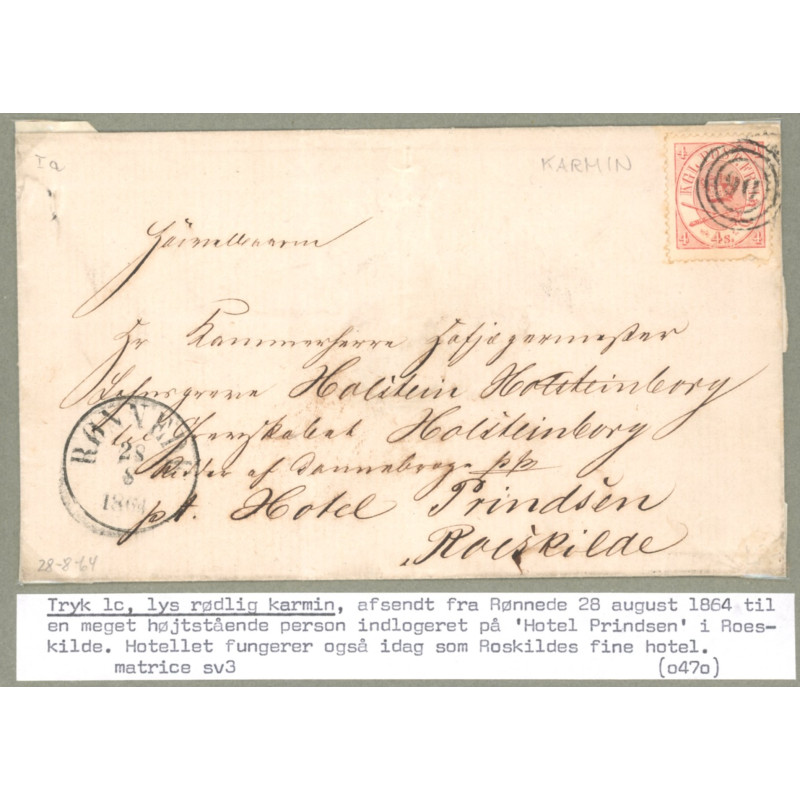 Ia
KARMIN
4 KGL. POST FRM 4
90
4 4s. 4
Höivelbaarne
Hr Kammerherre Hofjægermester
Lehnsgreve Holstein Holsteinborg
Grevskabet Holsteinborg
Ridder af Dannebroge pp
pt. Hotel Prindsen
Roeskilde
RØNNEDE
28
8
1864
28-8-64
Tryk lc, lys rødlig karmin, afsendt fra Rønnede 28 august 1864 til
en meget højtstående person indlogeret på 'Hotel Prindsen' i Roes-
kilde. Hotellet fungerer også idag som Roskildes fine hotel.
matrice sv3 (o47o)